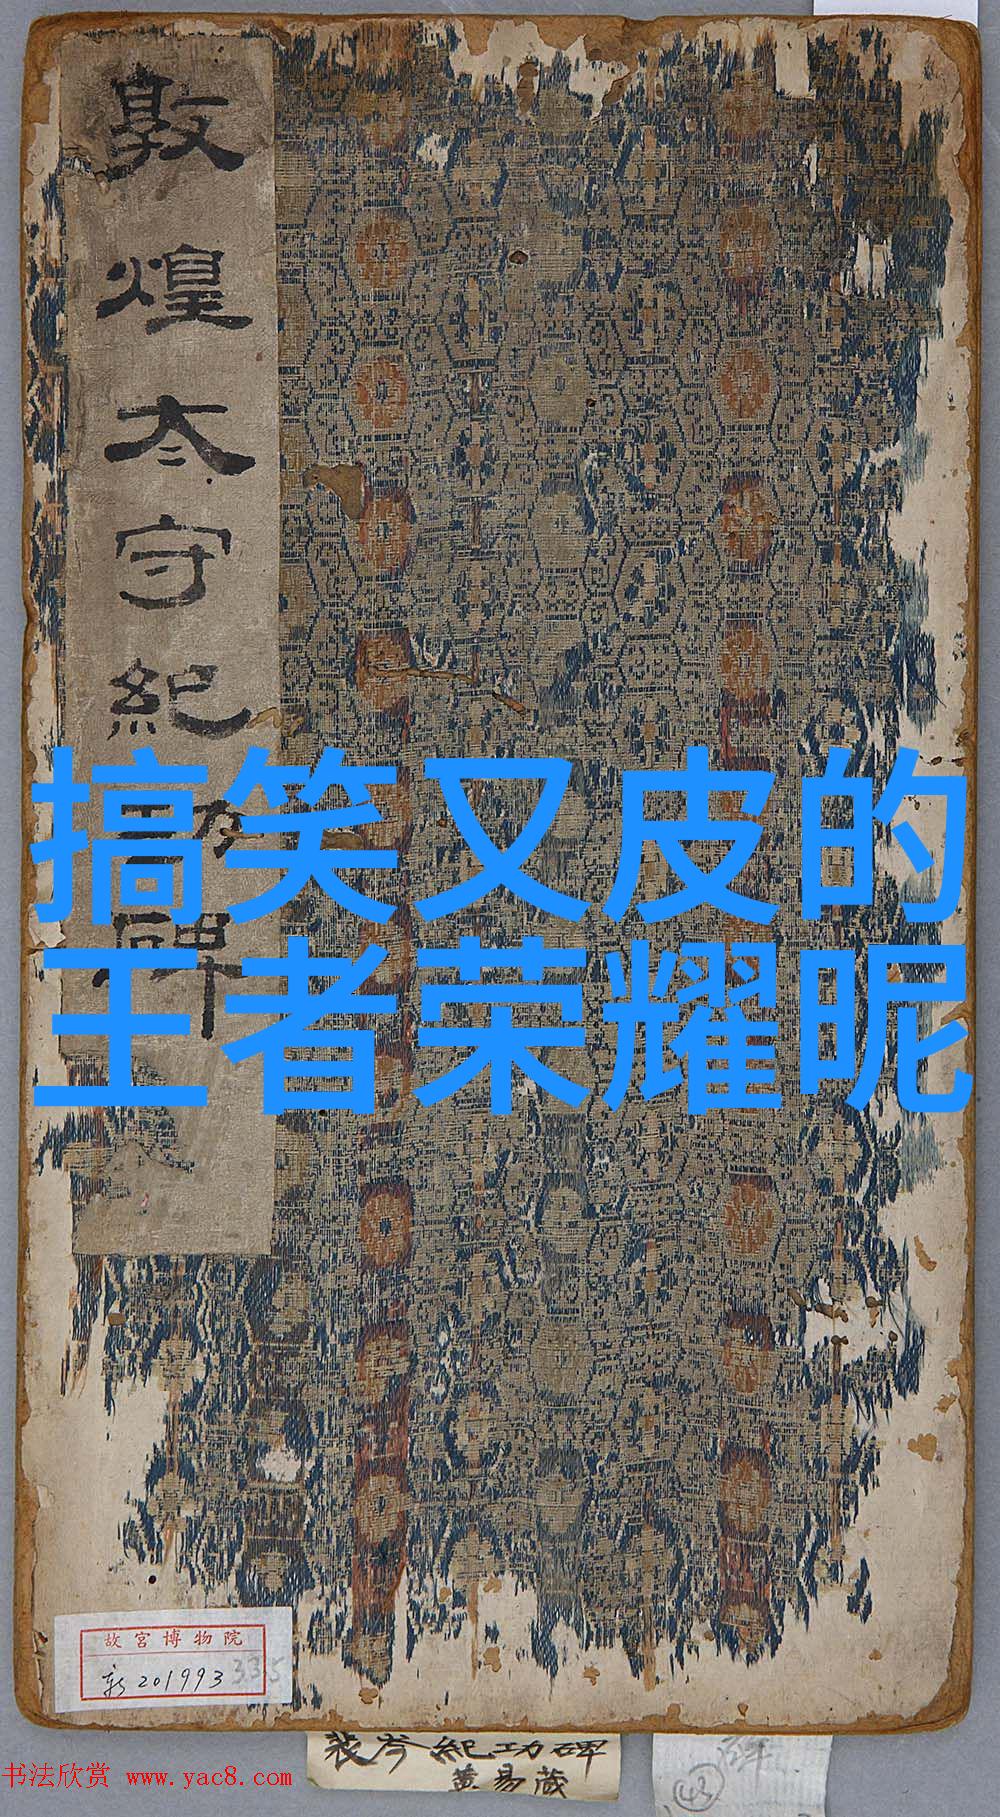 敦煌太守紀功碑
搞笑又皮的
王者荣耀呢
故宮博物院
新201993
335
裴岑紀功碑
黄易蔵
43
书法欣赏 www.yac8.com